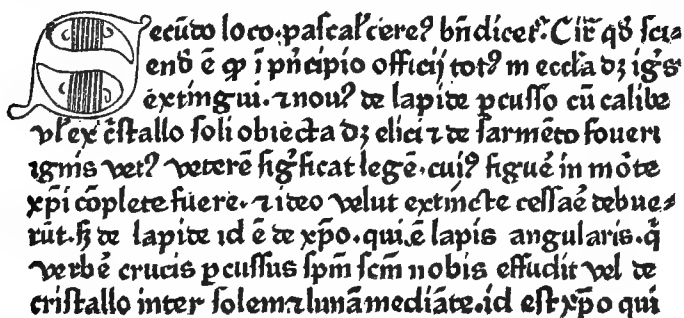 Secūdo loco. pascal' cereꝰ bn̄dicet᷑. Cir̄ qd̄ sci⸗
end̄ ē ꝙ ī pn̄cipio officij totꝰ m eccl'a dꝫ ig's
extingui. ⁊ nouꝰ de lapide ꝑcusso cū calibe
vl' ex c̄stallo soli obiecta dꝫ elici ⁊ de sarmēto foueri
ignis vetꝰ veterē sig'ficat legē. cuiꝰ figuē in mōte
xp̄i cōplete fuere. ⁊ ideo velut extincte cessaē debue⸗
rūt. sꝫ de lapide id ē de xp̄o. qui ē lapis angularis. q̄
verbē crucis ꝑcussus sp̄m sc̄m nobis effudit vel de
cristallo inter solem ⁊ lunā mediāte. id est xp̄o qui